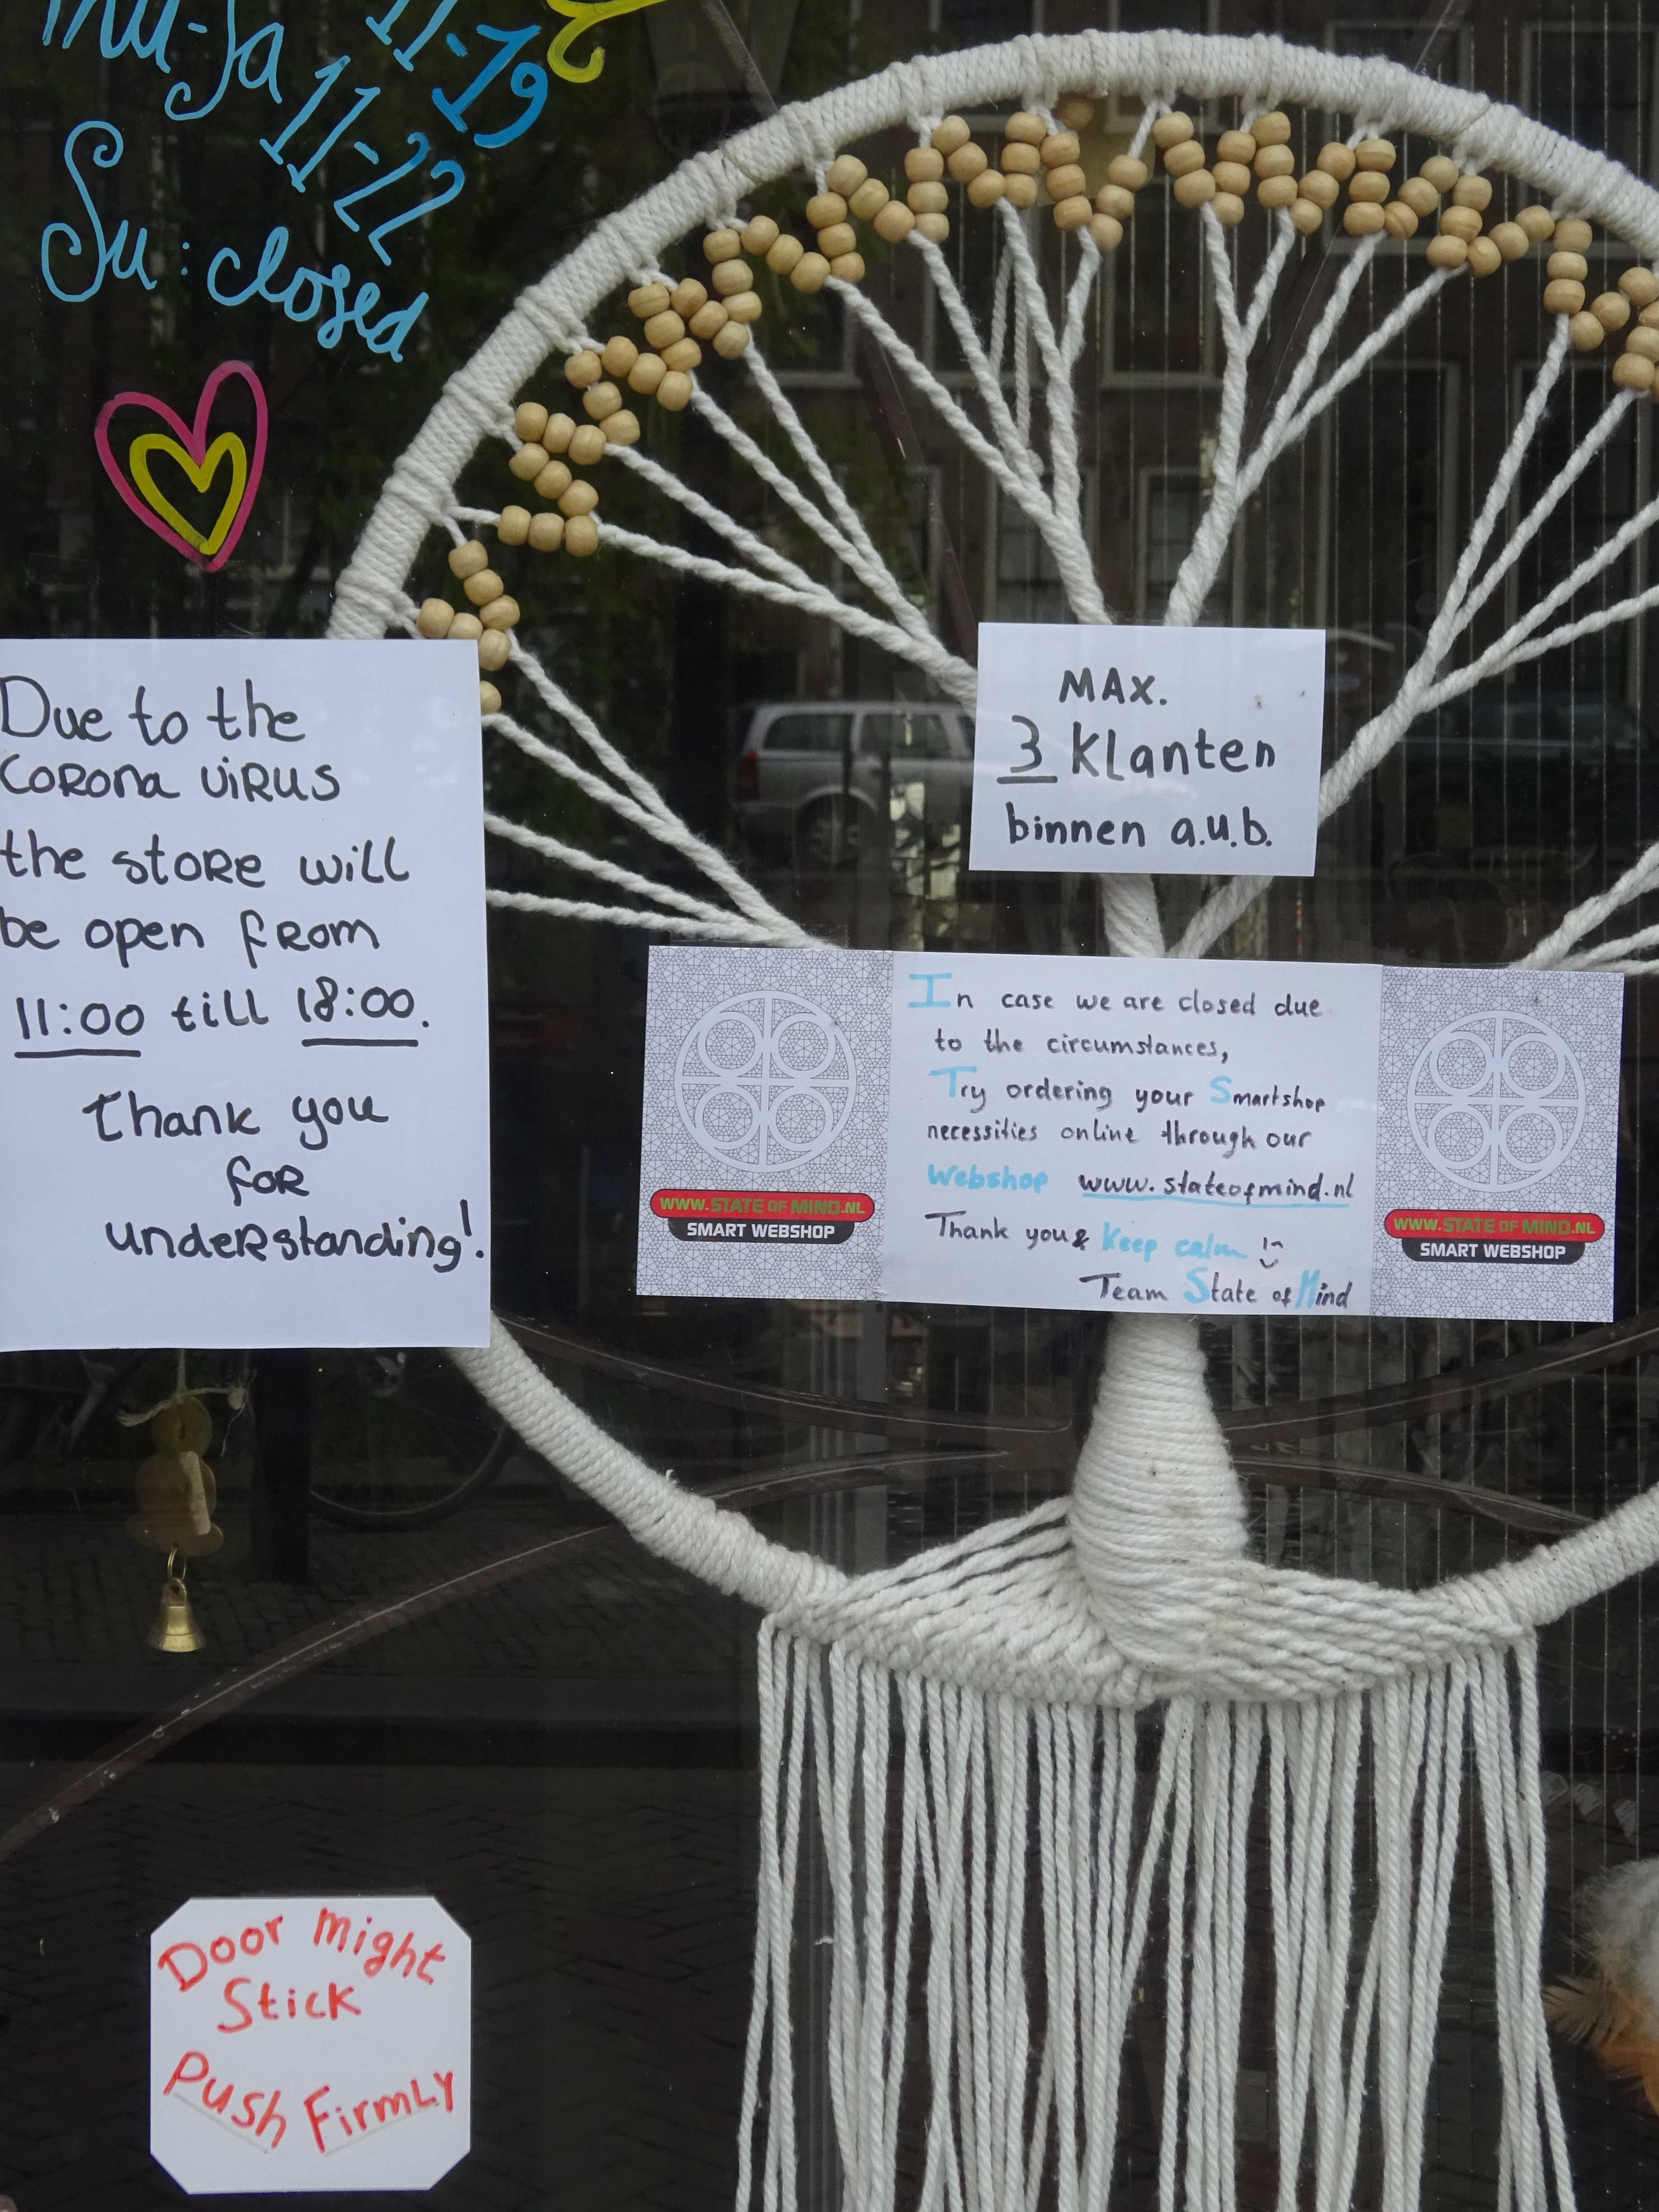 11-19
Thu-Sa 11-22
Su: closed
Due to the
CORONA VIRUS
the STORE will
be open from
11:00 till 18:00.
Thank you
for
understanding!
MAX.
3 Klanten
binnen a.u.b.
In case we are closed due
to the circumstances,
Try ordering your Smartshop
necessities online through our
Webshop www.stateofmind.nl
Thank you & Keep calm
Team State of Mind
WWW.STATE OF MIND.NL
SMART WEBSHOP
WWW.STATE OF MIND.NL
SMART WEBSHOP
Door Might
Stick
Push FirmLY